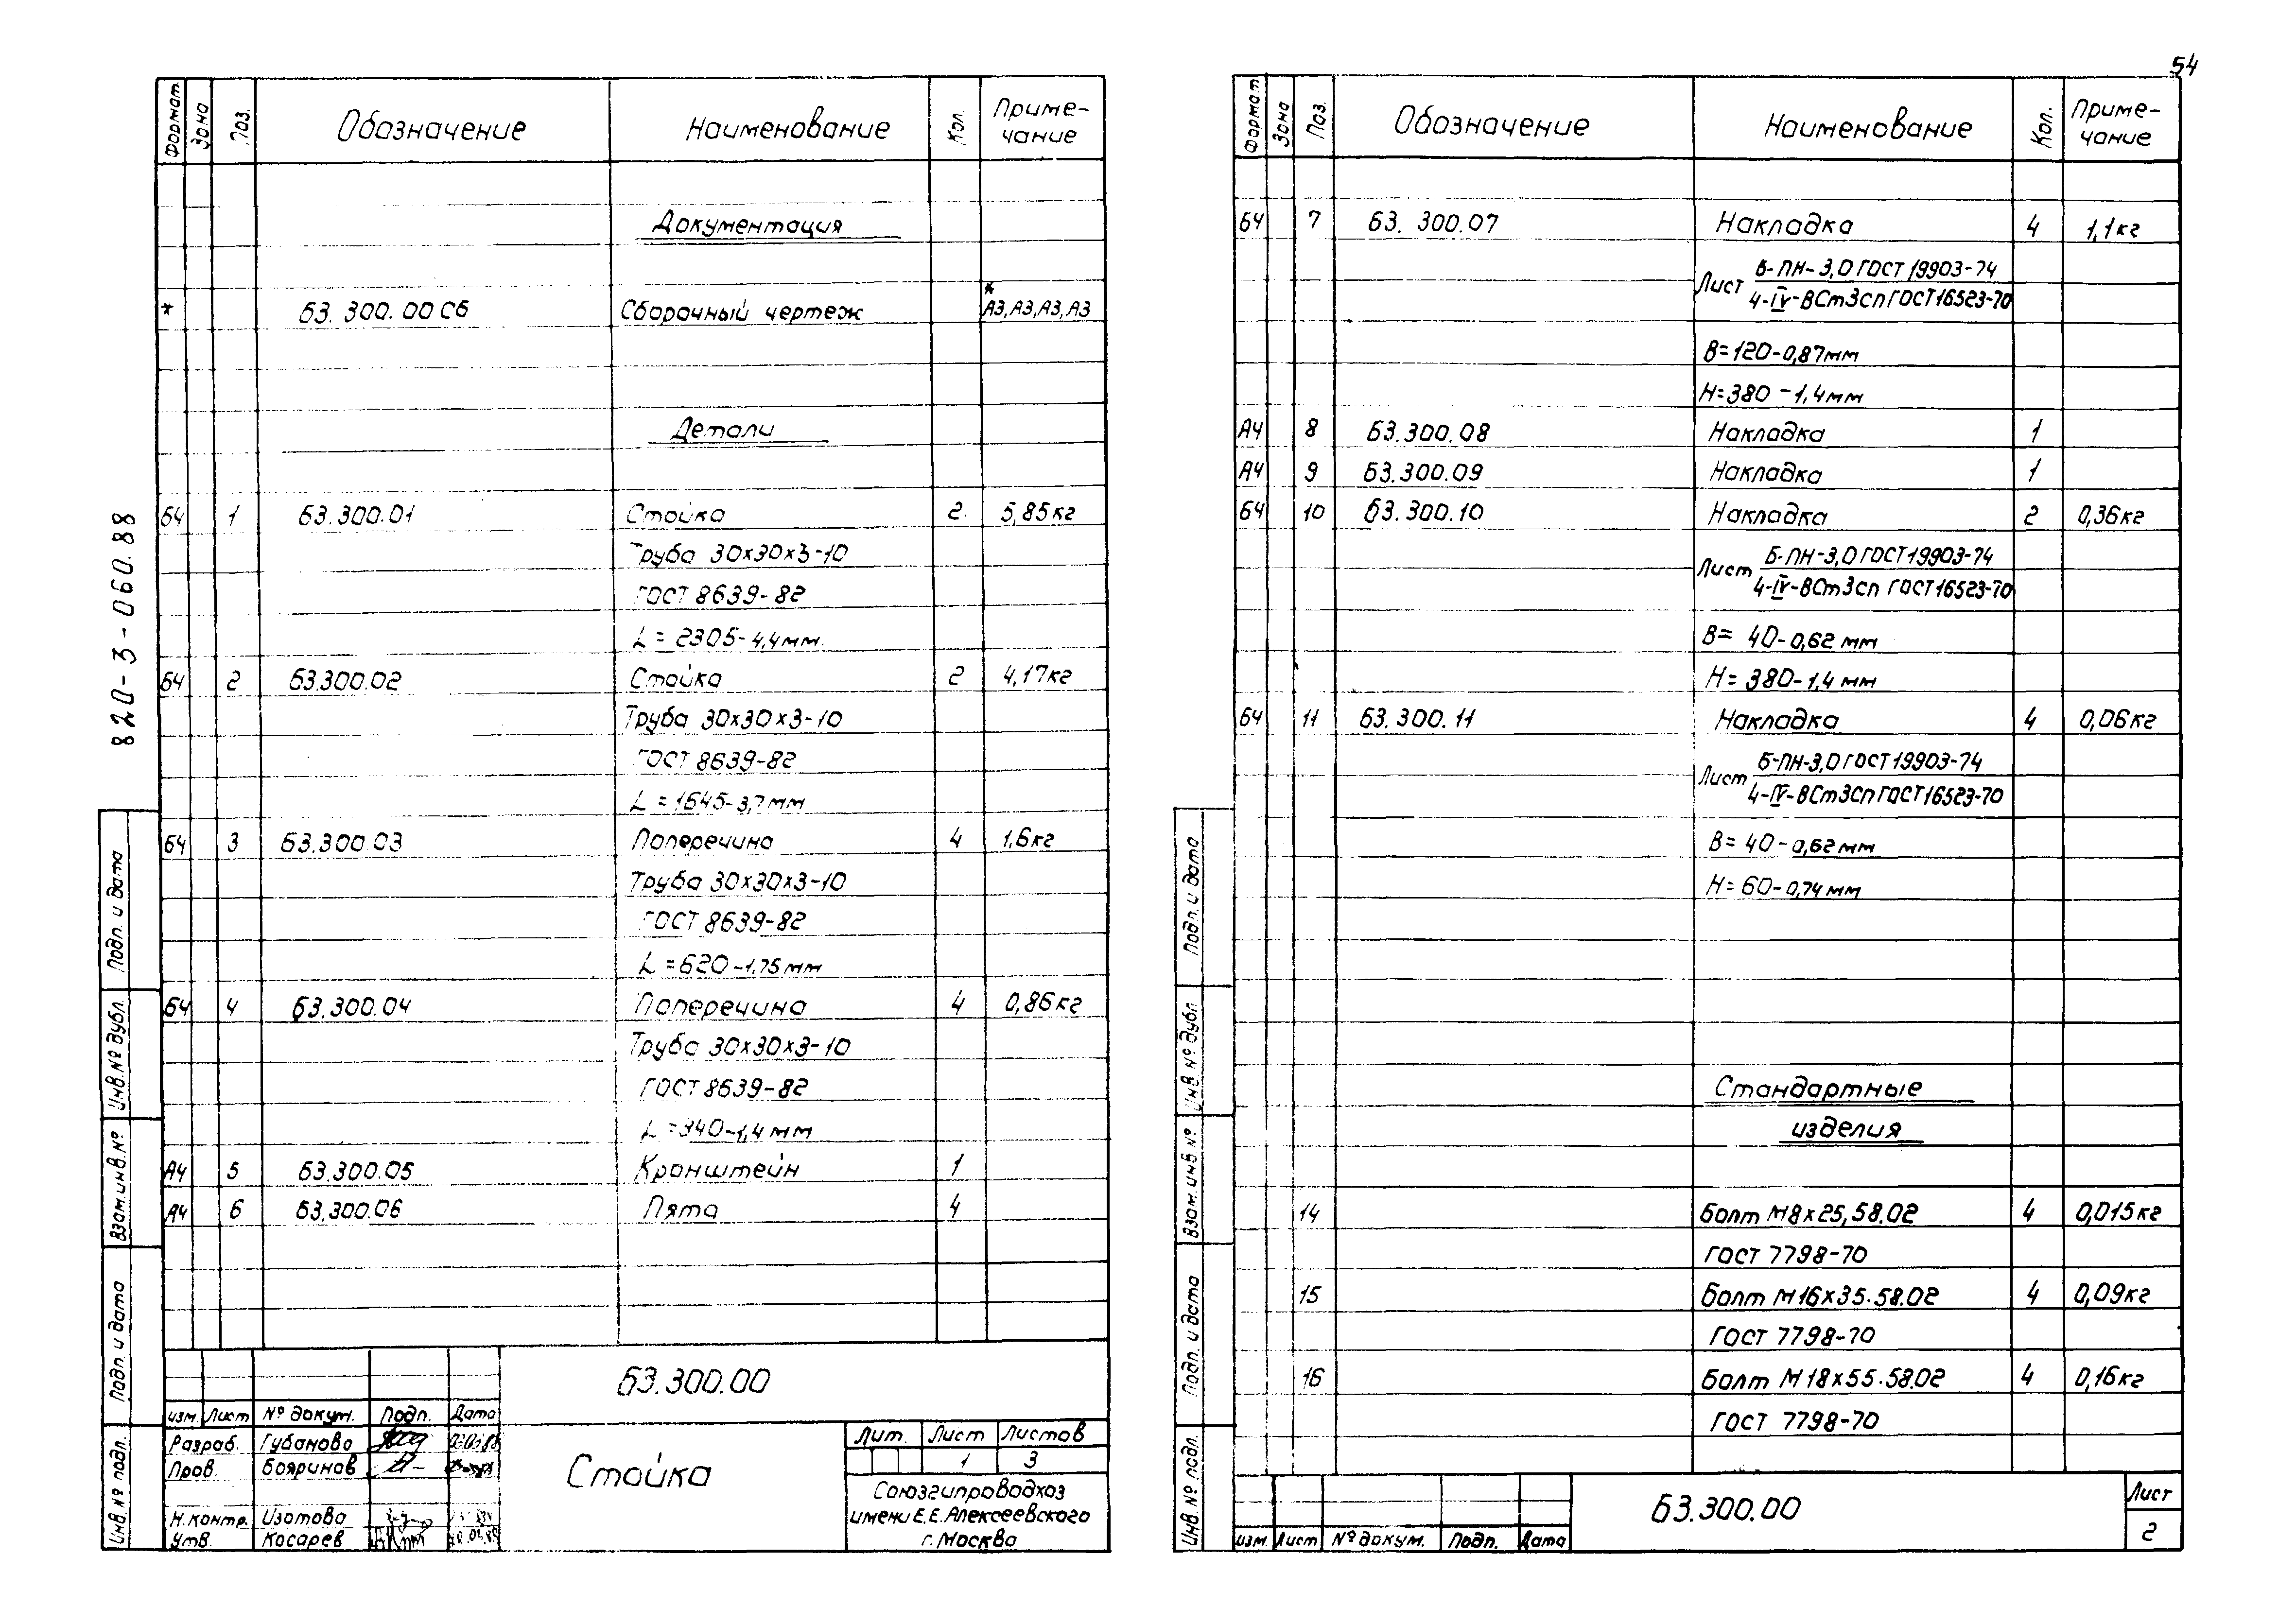 54
820-3-060.88
Формат Зона Поз. Обозначение Наименование Кол. Приме-
чание
Документация
* Б3.300.00 СБ Сборочный чертеж *А3,А3,А3,А3
Детали
БЧ 1 Б3.300.01 Стойка 2 5,85кг
Труба 30х30х3-10
ГОСТ 8639-82
L = 2305-4,4мм.
БЧ 2 Б3.300.02 Стойка 2 4,17кг
Труба 30х30х3-10
ГОСТ 8639-82
L = 1645-3,7мм
БЧ 3 Б3.300 03 Поперечина 4 1,6кг
Труба 30х30х3-10
ГОСТ 8639-82
L = 620-1,75мм
БЧ 4 Б3.300.04 Поперечина 4 0,86кг
Труба 30х30х3-10
ГОСТ 8639-82
L = 340-1,4мм
А4 5 Б3.300.05 Кронштейн 1
А4 6 Б3.300.06 Пята 4
Подп. и дата
Инв.№ дубл.
Взам.инв.№
Подп. и дата
Инв.№ подл.
Б3.300.00
Изм. Лист № докум. Подп. Дата
Разраб. Губанова
Пров. Бояринов
Н.контр. Изотова
Утв. Косарев
Стойка
Лит. Лист Листов
1 3
Союзгипроводхоз
имени Е.Е.Алексеевского
г.Москва
Формат Зона Поз. Обозначение Наименование Кол. Приме-
чание
БЧ 7 Б3.300.07 Накладка 4 1,1кг
Лист Б-ПН-3,0 ГОСТ 19903-74
4-IV-ВСт3сп ГОСТ 16523-70
В=120-0,87мм
Н=380-1,4мм
А4 8 Б3.300.08 Накладка 1
А4 9 Б3.300.09 Накладка 1
БЧ 10 Б3.300.10 Накладка 2 0,36кг
Лист Б-ПН-3,0 ГОСТ 19903-74
4-IV-ВСт3сп ГОСТ 16523-70
В= 40-0,62 мм
Н= 380-1,4 мм
БЧ 11 Б3.300.11 Накладка 4 0,06кг
Лист Б-ПН-3,0 ГОСТ 19903-74
4-IV-ВСт3сп ГОСТ 16523-70
В= 40-0,62мм
Н= 60-0,74мм
Стандартные
изделия
14 Болт М8х25,58.02 4 0,015кг
ГОСТ 7798-70
15 Болт М16х35.58.02 4 0,09кг
ГОСТ 7798-70
16 Болт М18х55.58.02 4 0,16кг
ГОСТ 7798-70
Подп. и дата
Инв.№ дубл
Взам.инв.№
Подп. и дата
Инв.№ подл.
Изм. Лист № докум. Подп. Дата
Б3.300.00
Лист
2